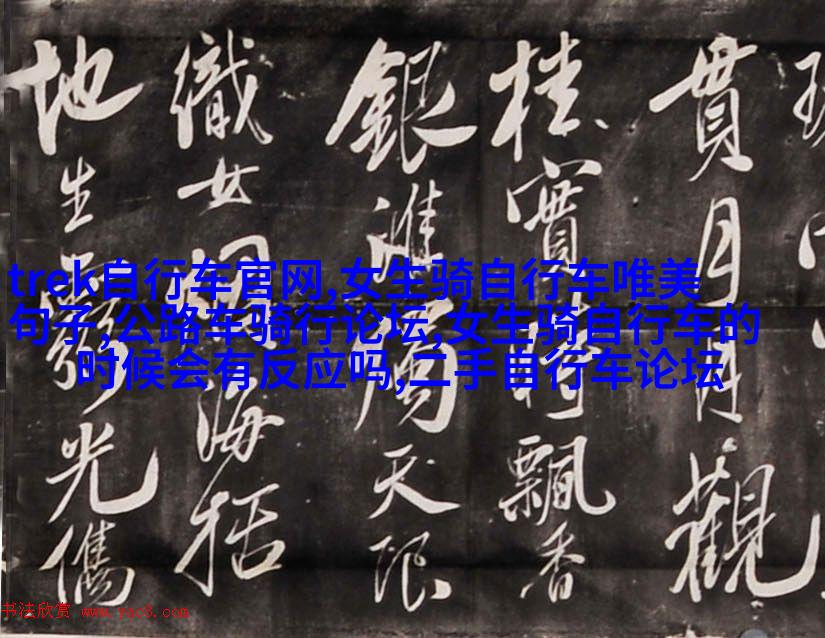 貫月月觀
桂實飄香
銀淮屬天限
織女海括
地生光儁
trek自行车官网,女生骑自行车唯美
句子,公路车骑行论坛,女生骑自行车的
时候会有反应吗,二手自行车论坛
书法欣赏 www.yac8.com